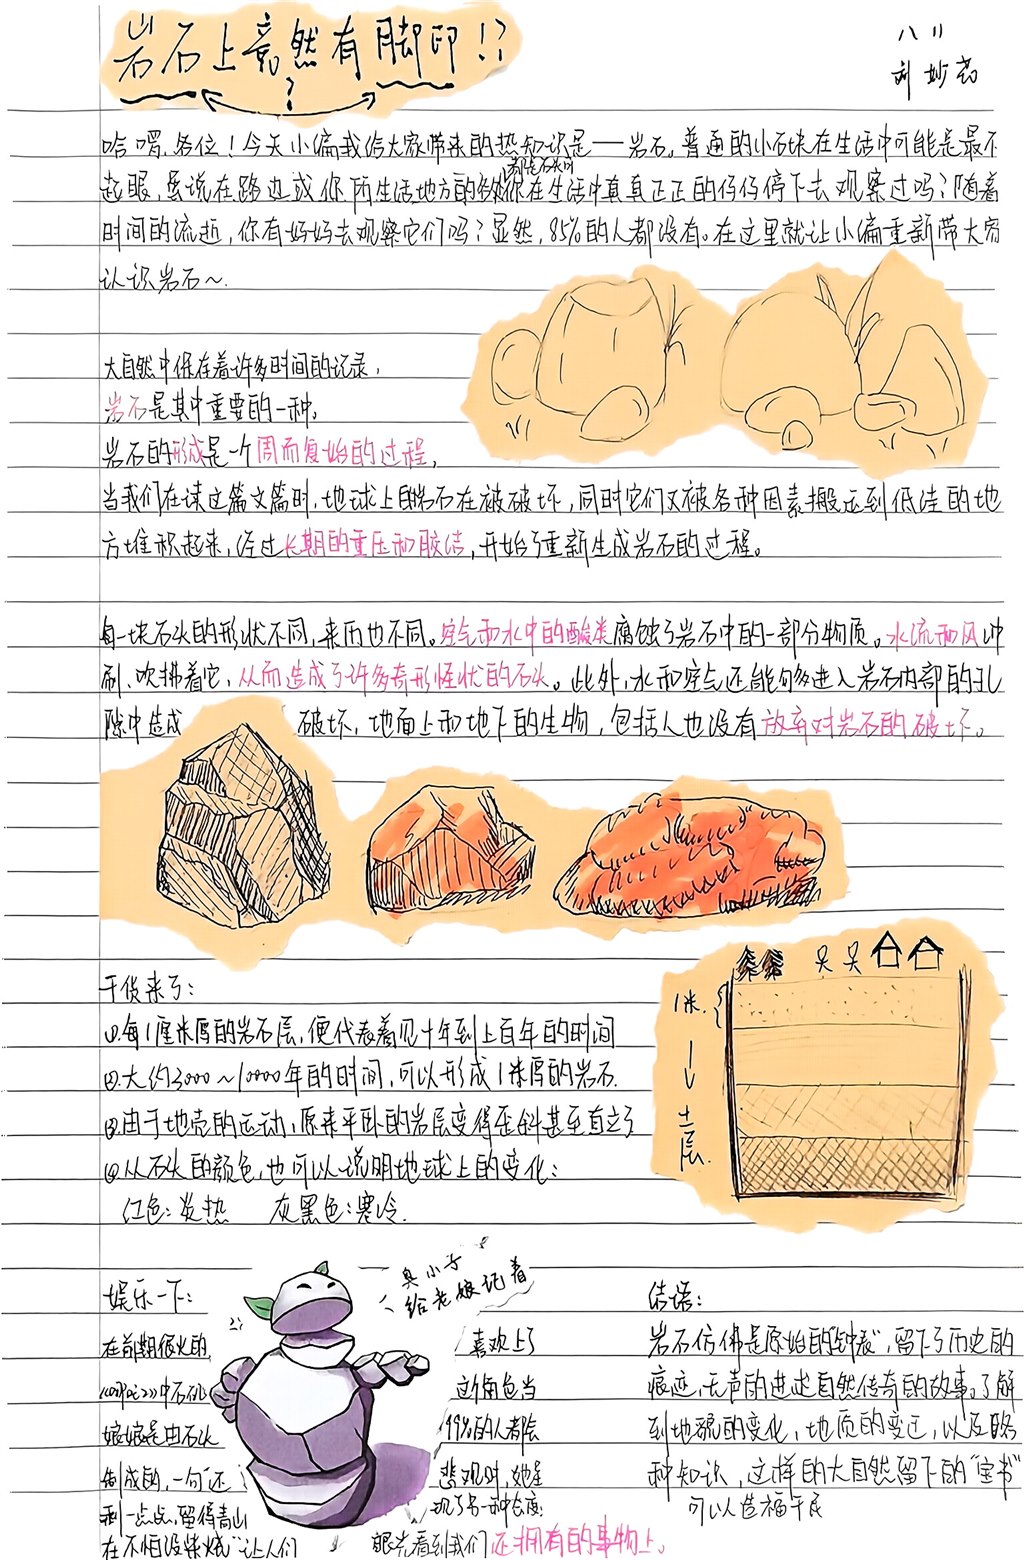 岩石上竟然有脚印!?
?
八11
刘妙
哈喽,各位!今天小编我给大家带来的热知识是——岩石。普通的小石块在生活中可能是最不
都是石头,可
起眼,虽说在路边或你所生活地方的 你在生活中真真正正的仔仔停下去观察过吗?随着
时间的流逝,你有好好去观察它们吗?显然,85%的人都没有。在这里就让小编重新带大家
认识岩石~.
大自然中保存着许多时间的记录,
岩石是其中重要的一种,
岩石的形成是一个周而复始的过程,
当我们在读这篇文篇时,地球上的岩石在被破坏,同时它们又被各种因素搬运到低洼的地
方堆积起来,经过长期的重压和胶结,开始了重新生成岩石的过程。
每一块石头的形状不同,来历也不同。空气和水中的酸类腐蚀了岩石中的一部分物质。水流和风冲
刷、吹拂着它,从而造成了许多奇形怪状的石头。此外,水和空气还能够多进入岩石内部的孔
隙中造成 破坏,地面上和地下的生物,包括人也没有放弃对岩石的破坏。
干货来了:
①.每1厘米厚的岩石层,便代表着几十年到上百年的时间
②.大约3000~10000年的时间,可以形成1米厚的岩石.
③由于地壳的运动,原来平卧的岩层变得歪斜甚至直立了
④从石头的颜色,也可以说明地球上的变化:
红色:炎热 灰黑色:寒冷.
1米.
土层.
娱乐一下:
在前期很火的
中石矶
娘娘是由石头
制成的,一句“还
剩一点点,留得青山
在不怕没柴烧”让人们
臭小子
给老娘记着
喜欢上了
这个角色当
99%的人都会
悲观时,她呈
现了另一种态度:
眼光看到我们还拥有的事物上。
结语:
岩石仿佛是原始的“钟表”,留下了历史的
痕迹,无声的讲述自然传奇的故事。了解
到地貌的变化,地质的变迁,以及略
种知识,这样的大自然留下的“宝书”
可以造福于民